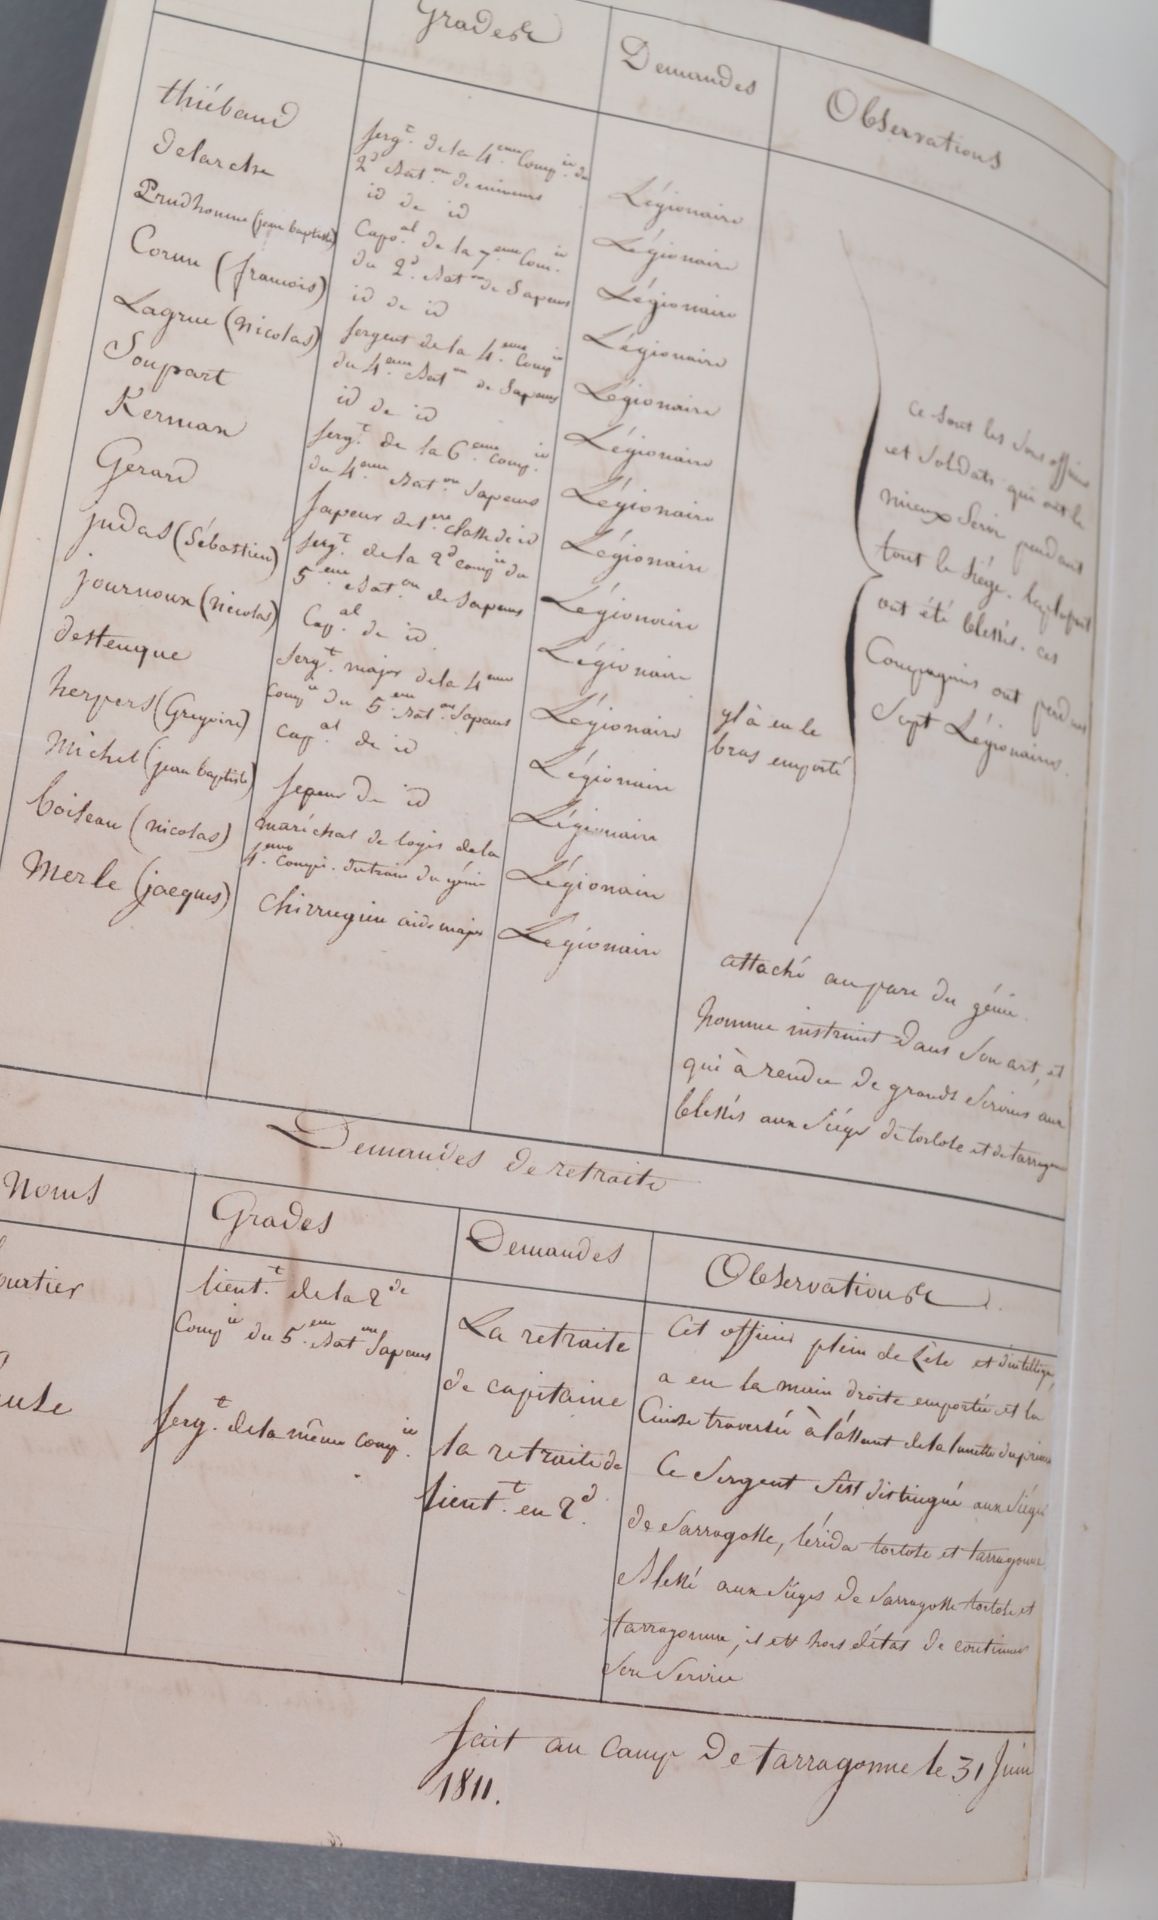 Grades Demandes Observations
thiébaud Serg.t de la 4.eme Comp.ie du Légionaire
2.d Bat.on de mineurs
delarche id de id Légionaire
Prudhomme (jean baptiste) Capo.al de la 7.eme Com.ie Légionaire
du 2.d Bat.on de Sapeurs
Cornu (francois) id de id Légionaire
Lagrue (nicolas) Sergent de la 4.eme Comp.ie Légionaire
du 4.eme Bat.on de Sapeurs
Soupart id de id Légionaire
Kerman Serg.t de la 6.eme Comp.ie Légionaire
du 4.eme Bat.on Sapeurs
Gerard Sapeur de 1.ere classe de id Légionaire
judas (Sébastien) Serg.t de la 2.d Comp.ie du Légionaire
5.eme Bat.on de Sapeurs
journoux (nicolas) Cap.al de id Légionaire
destenque Serg.t major de la 4.eme Légionaire
Comp.ie du 5.eme Bat.on Sapeurs
herpers (Gregoire) Cap.al de id Légionaire
michel (jean baptiste) Sapeur de id Légionaire
boileau (nicolas) maréchal de logis de la Légionaire
Comp.ie du train du génie
Merle (jacques) chirrugien aide major Légionaire
yl à eu le
bras emporté
Ce Sont les Sous officiers
et Soldats qui ont le
mieux Servi pendant
tout le Siége. la plupart
ont été blessés. ces
Compagnies ont perdu
Sept Légionaires.
attaché au parc du génie.
homme instruit dans Son art, et
qui à rendu de grands Services aux
blessés aux Siéges de tortose et de tarragone
Demandes de retraite
Noms Grades Demandes Observations
lieut.t de la 2.de
Comp.ie du 5.eme Bat.on Sapeurs
La retraite
de capitaine
Cet officier plein de zèle et d'intelligence
a eu la main droite emportée et la
Cuisse traversée à l'assaut de la lunette du prince
Serg.t de la même Comp.ie
la retraite de
lieut.t en 2.d
Ce Sergent S'est distingué aux Siéges
de Sarragosse, lérida tortose et tarragonne.
Blessé aux Siéges de Sarragosse tortose et
tarragonne, il est hors d'état de continuer
Son Service
fait au Camp de tarragonne le 31 Juin
1811.